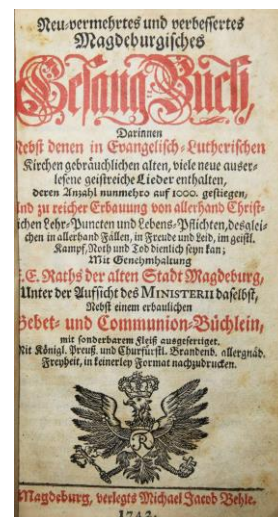 Neu-vermehrtes und verbessertes
Magdeburgisches
Gesang-Buch,
Darinnen
Nebst denen in Evangelisch-Lutherischen
Kirchen gebräuchlichen alten, viele neue auser-
lesene geistreiche Lieder enthalten,
deren Anzahl nunmehro auf 1000. gestiegen,
Und zu reicher Erbauung von allerhand Christ-
lichen Lehr-Puncten und Lebens-Pflichten, desglei-
chen in allerhand Fällen, in Freude und Leid, im geistl.
Kampf, Noth und Tod dienlich seyn kan;
Mit Genehmhaltung
E. E. Raths der alten Stadt Magdeburg,
Unter der Aufsicht des MINISTERII daselbst,
Nebst einem erbaulichen
Gebet- und Communion-Büchlein,
mit sonderbarem Fleiß ausgefertiget.
Mit Königl. Preuß. und Churfürstl. Brandenb. allergnäd.
Freyheit, in keinerley Format nachzudrucken.
FR
Magdeburg, verlegts Michael Jacob Behle.
1742.